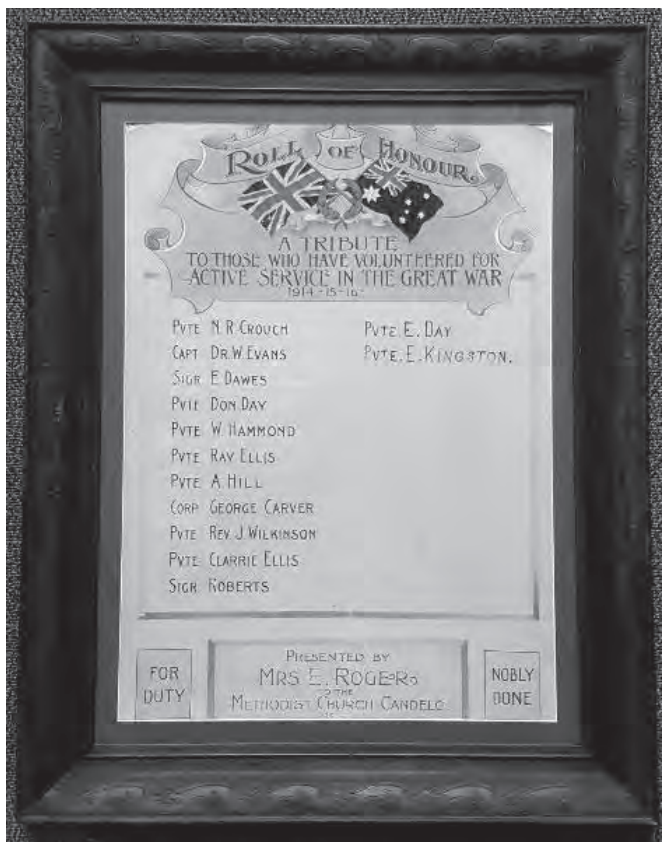 ROLL OF HONOUR
A TRIBUTE
TO THOSE WHO HAVE VOLUNTEERED FOR
ACTIVE SERVICE IN THE GREAT WAR
1914-15-16-
PVTE N.R. CROUCH
CAPT DR. W. EVANS
SIGR F. DAWES
PVTE DON DAY
PVTE W. HAMMOND
PVTE RAY ELLIS
PVTE A. HILL
CORP GEORGE CARVER
PVTE REV. J. WILKINSON
PVTE CLARRIE ELLIS
SIGR ROBERTS
PVTE. E. DAY
PVTE. E. KINGSTON.
FOR
DUTY
PRESENTED BY
MRS E. ROGERS
TO THE
METHODIST CHURCH CANDELO
NOBLY
DONE